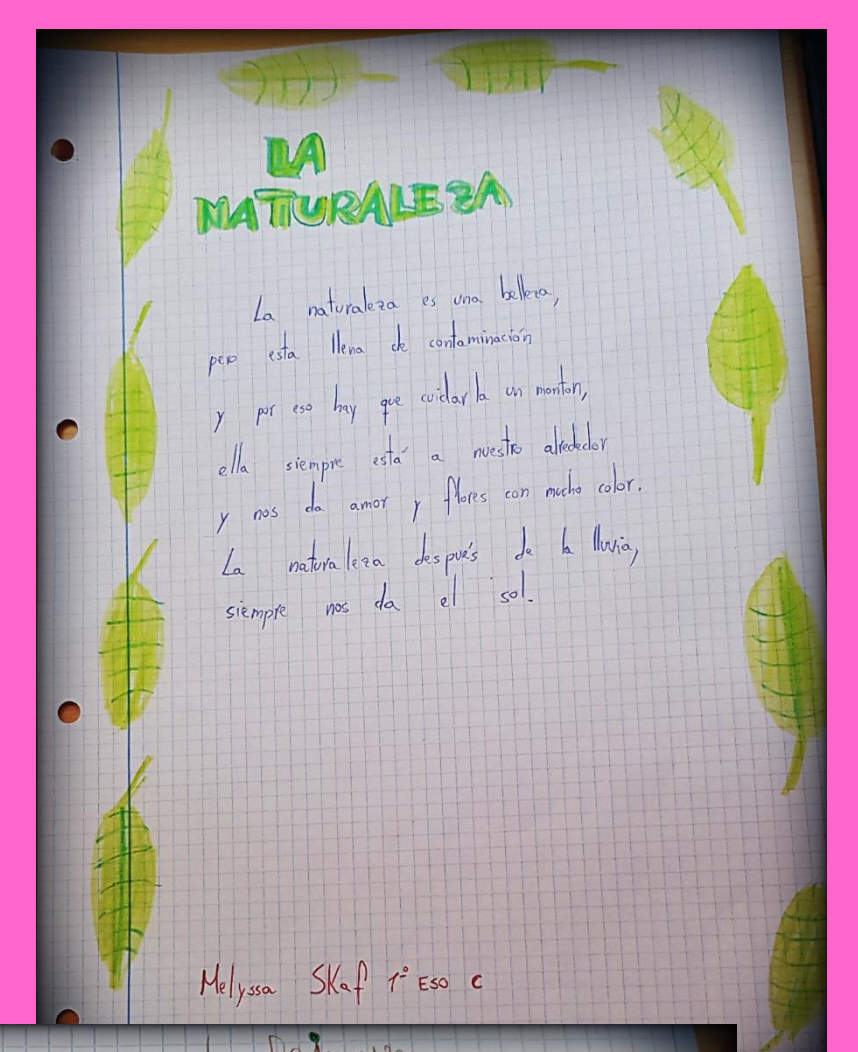 LA
NATURALEZA
La naturaleza es una belleza,
pero esta llena de contaminación
y por eso hay que cuidar la un monton,
ella siempre está a nuestro alrededor
y nos da amor y flores con mucho color.
La naturaleza después de la lluvia,
siempre nos da el sol.
Melyssa SKaf 1º ESO C